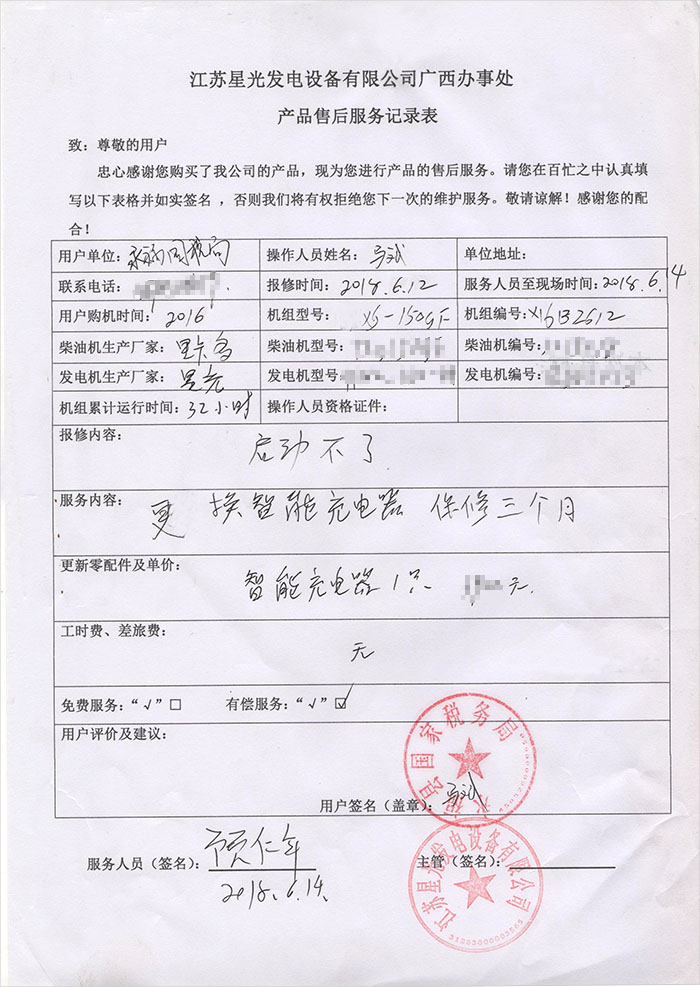 江苏星光发电设备有限公司广西办事处
产品售后服务记录表
致：尊敬的用户
忠心感谢您购买了我公司的产品，现为您进行产品的售后服务。请您在百忙之中认真填
写以下表格并如实签名，否则我们将有权拒绝您下一次的维护服务。敬请谅解！感谢您的配
合！
用户单位：永福国税局 操作人员姓名： 单位地址：
联系电话： 报修时间：2018.6.12 服务人员至现场时间：2018.6.14
用户购机时间：2016 机组型号：XG-150GF 机组编号：
柴油机生产厂家： 柴油机型号： 柴油机编号：
发电机生产厂家：星光 发电机型号： 发电机编号：
机组累计运行时间：32小时 操作人员资格证件：
报修内容：
启动不了
服务内容：
更换智能充电器 保修三个月
更新零配件及单价：
智能充电器1只 元.
工时费、差旅费：
无
免费服务：“√”□ 有偿服务：“√”☑
用户评价及建议：
县国家税务局
用户签名（盖章）：
服务人员（签名）：贾仁年 主管（签名）：
2018.6.14.
江苏星光发电设备有限公司